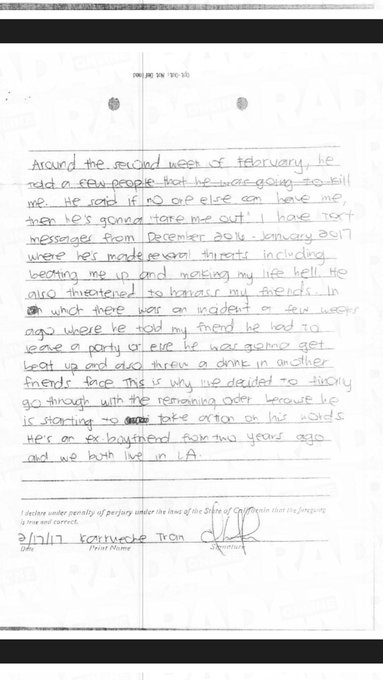 Around the second week of february, he
told a few people that he was going to kill
me. He said if no one else can have me,
then he's gonna 'take me out' I have text
messages from December 2016 - January 2017
where he's made several threats including
beating me up and making my life hell. He
also threatened to harrass my friends. In
which there was an incident a few weeks
ago where he told my friend he had to
leave a party or else he was gonna get
beat up and also threw a drink in another
friends face. This is why ive decided to finally
go through with the restraining order because he
is starting to take action on his words.
He's an ex-boyfriend from two years ago
and we both live in LA.
I declare under penalty of perjury under the laws of the State of California that the foregoing
is true and correct.
2/17/17 Karrueche Tran
Date Print Name Signature